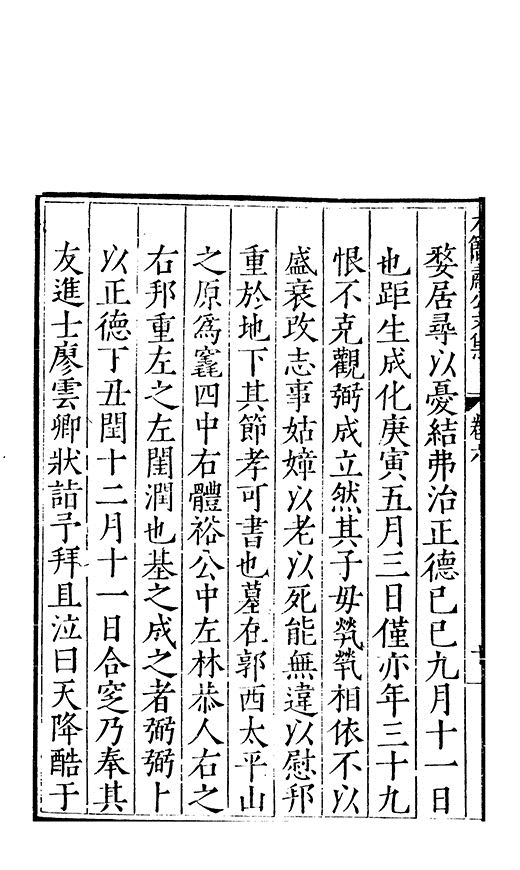 婺居尋以憂結弗治正德己巳九月十一日
也距生成化庚寅五月三日僅亦年三十九
恨不克觀弼成立然其子毋煢煢相依不以
盛衰改志事姑嫜以老以死能無違以慰邦
重於地下其節孝可書也墓在郭西太平山
之原爲窀四中右體裕公中左林恭人右之
右邦重左之左閨潤也基之成之者弼弼卜
以正德丁丑閏十二月十一日合窆乃奉其
友進士廖雲卿狀詣予拜且泣曰天降酷于